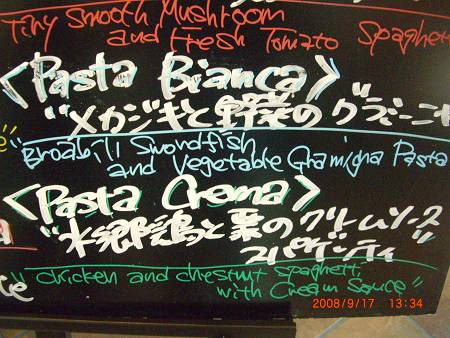 Tiny Smooth Mushroom
and Fresh Tomato Spaghetti
<Pasta Bianca>
"メカジキと野菜のグラミーニャ
"Broabill Swordfish
and Vegetable Gramigna Pasta
<Pasta Crema>
"水郷鶏と栗のクリームソース
スパゲッティ"
"Chicken and chestnut spaghetti
with Cream Sauce"
2008/9/17 13:34